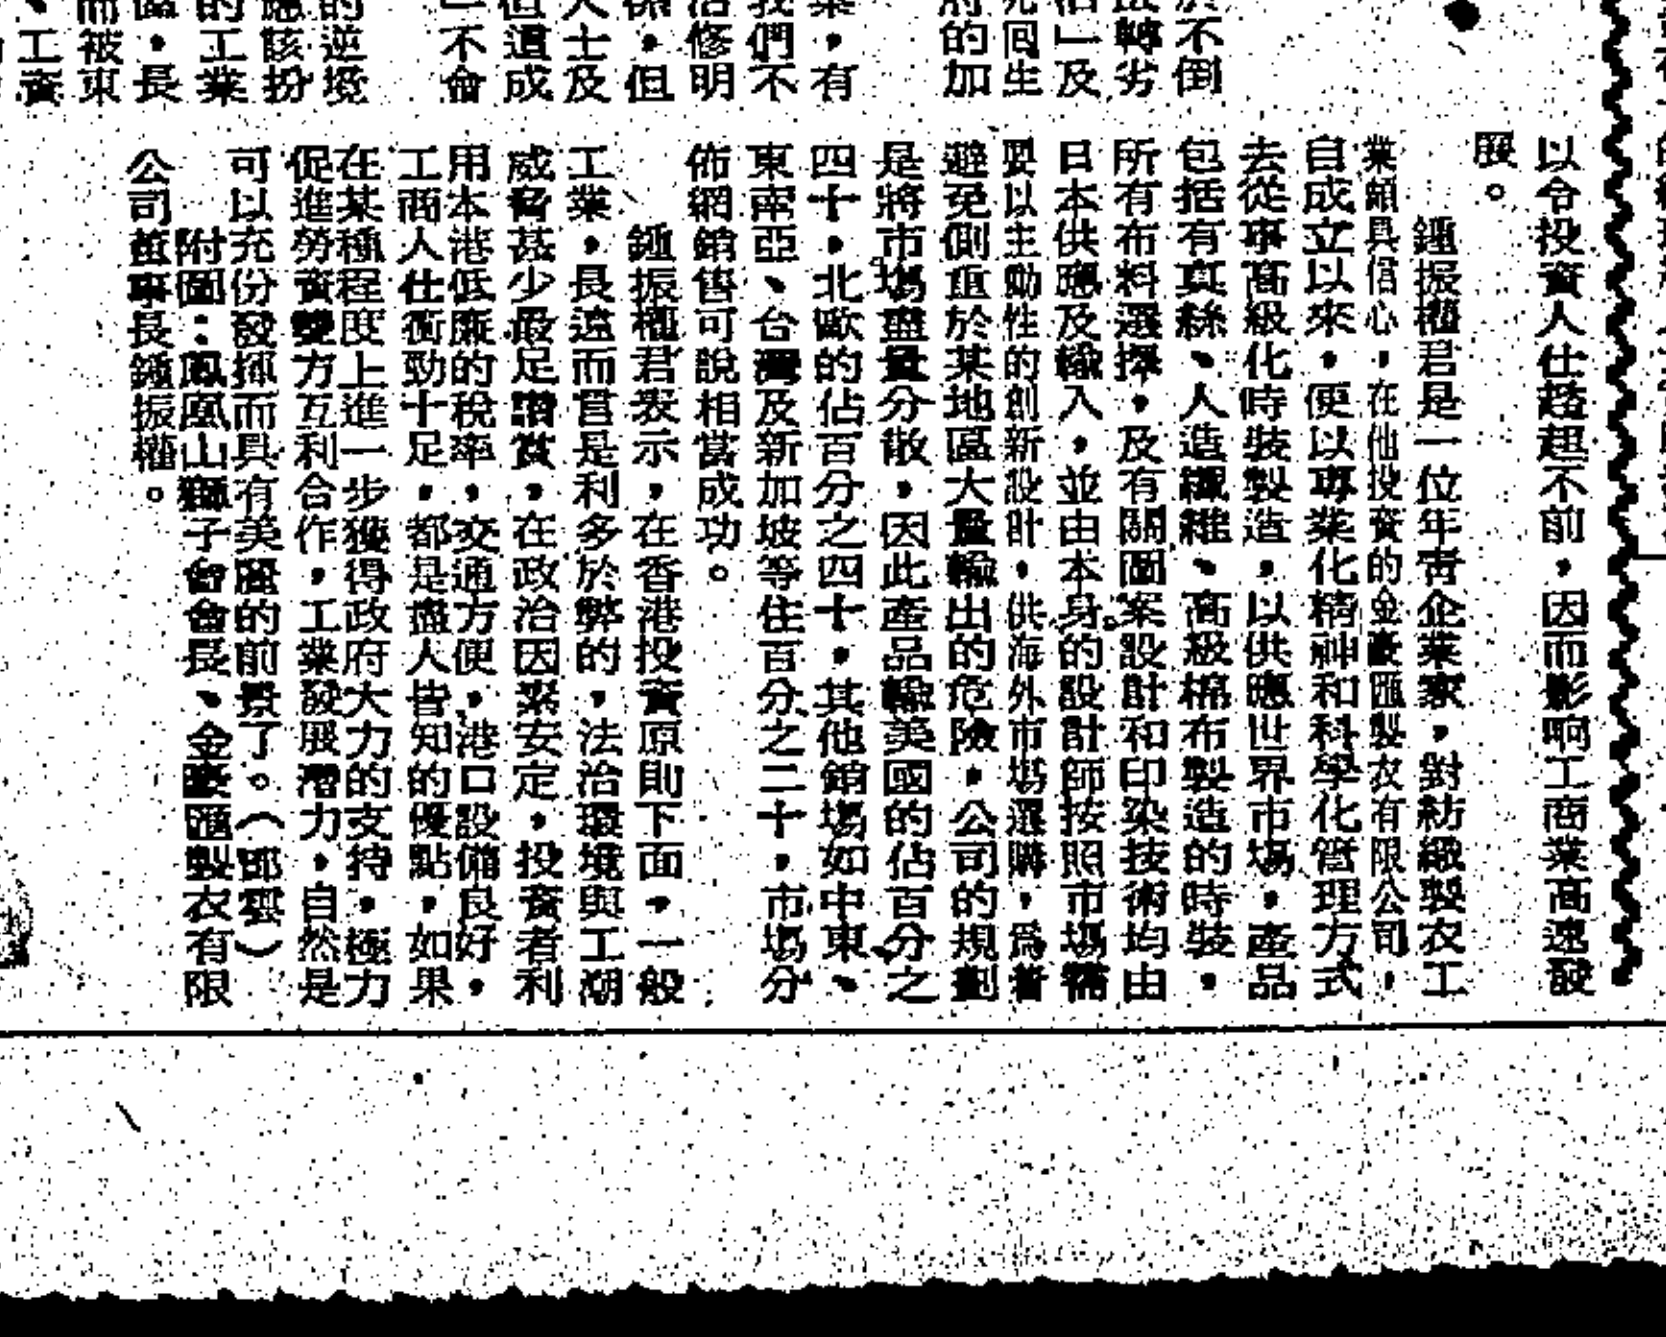 於不倒
法轉劣
治」及
死回生
府的加
業，有
我們不
治修明
係，但
人士及
但這成
「不會
的逆境
應該扮
的工業
區，長
而被東
、工資
以令投資人仕趑趄不前，因而影响工商業高速發
展。
鍾振權君是一位年靑企業家，對紡織製衣工
業頗具信心，在他投資的金豪匯製衣有限公司，
自成立以來，便以專業化精神和科學化管理方式
去從事高級化時裝製造，以供應世界市塲，產品
包括有真絲、人造纖維、高級棉布製造的時裝，
所有布料選擇，及有關圖案設計和印染技術均由
日本供應及輸入，並由本身的設計師按照市塲需
要以主動性的創新設計，供海外市塲選購，爲着
避免側重於某地區大量輸出的危險，公司的規劃
是將市塲盡量分散，因此產品輸美國的佔百分之
四十，北歐的佔百分之四十，其他銷塲如中東、
東南亞、台灣及新加坡等住百分之二十，市塲分
佈網銷售可說相當成功。
鍾振權君表示，在香港投資原則下面，一般
工業，長遠而言是利多於弊的，法治環境與工潮
威脅甚少最足讚賞，在政治因素安定，投資者利
用本港低廉的稅率，交通方便，港口設備良好，
工商人仕衝勁十足，都是盡人皆知的優點，如果
在某種程度上進一步獲得政府大力的支持，極力
促進勞資雙方互利合作，工業發展潛力，自然是
可以充份發揮而具有美麗的前景了。（鄧雲）
附圖：鳳凰山獅子會會長、金豪匯製衣有限
公司董事長鍾振權。